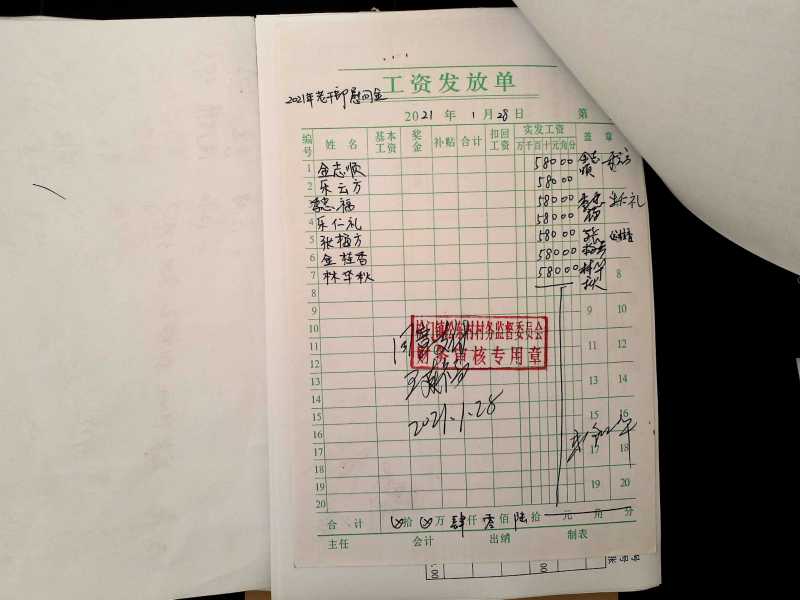 工资发放单
2021年老干部慰问金
2021 年 1 月 28 日 第
编号 姓名 基本工资 奖金 补贴 合计 扣回工资 实发工资 盖章
万千百十元角分
1 金志顺 58000 金志顺
2 乐云方 58000
李志福 58000
4 乐仁礼 58000
5 张梅方 58000
6 金桂香 58000
7 林华秋 58000 林华秋 8
8
9 9 10
10
11 11 12
12
13 13 14
14
15 15 16
16
17 17 18
18
19 19 20
20
村村务监督委员会
财务审核专用章
同意
2021.1.28
合计 拾 万 肆仟 零佰 陆拾 元 角 分
主任 会计 出纳 制表